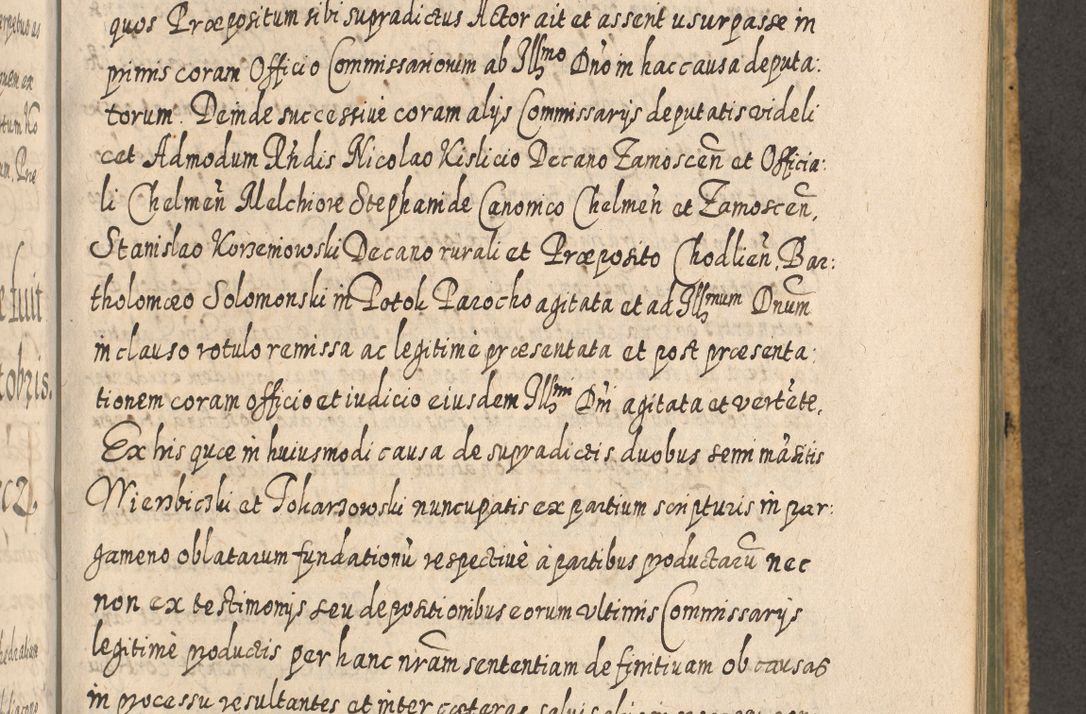 quos Præpositum sibi supradictus Actor ait et assent usurpasse in
primis coram Officio Commissariorum ab Illmo Dno in hac causa deputa:
torum. Deinde successiue coram alijs Commissarijs deputatis videli
cet Admodum Rndis Nicolao Kislicio Decano Zamoscen et Officia:
li Chelmen Melchiore Stephanide Canonico Chelmen et Zamoscen,
Stanislao Korzeniowski Decano rurali et Præposito Chodlien, Bar:
tholomæo Solomonski in Potok Parocho agitata et ad Illmum Dnum
in clauso rotulo remissa ac legitime præsentata et post præsenta:
tionem coram officio et iudicio eiusdem Illmi Dni agitata et vertente,
Ex his quæ in huiusmodi causa de supradictis duobus semimansitis
Wierzbiczki et Tokarzowski nuncupatis ex partium scripturis in par:
gameno oblatarum fundationu respectiuè à partibus productaru nec
non ex testimonijs seu depositionibus eorum vltimis Commissarijs
legitimè productis per hanc nram sententiam definitiuam ob causas
in processu resultantes et inter cæteras